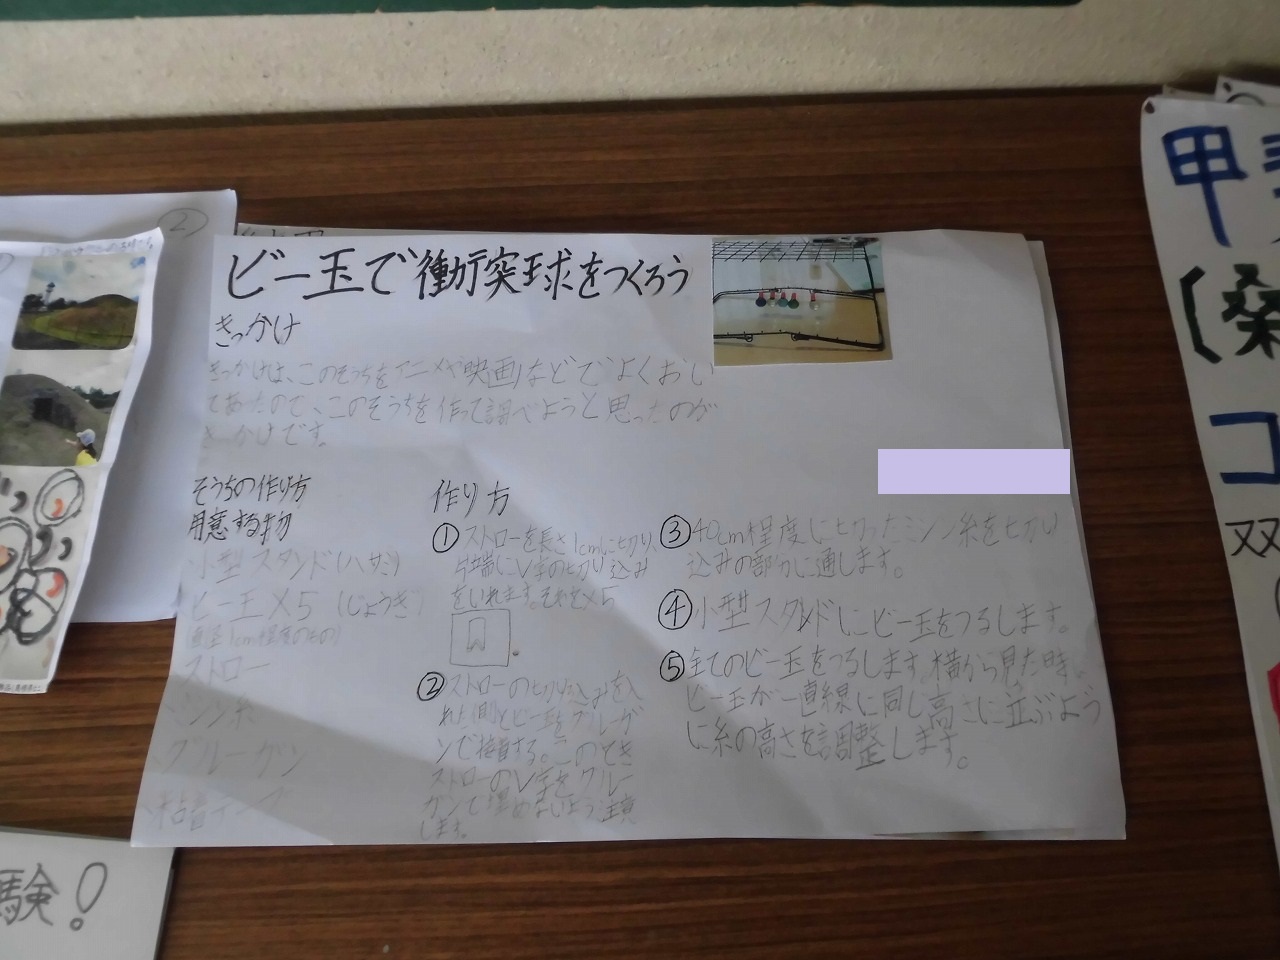 ビー玉で衝突球をつくろう
きっかけ
きっかけは、このそうちをアニメや映画などでよくおい
てあったので、このそうちを作って調べようと思ったのが
きっかけです。
そうちの作り方
用意する物
小型スタンド(ハサミ)
ビー玉×5 (じょうぎ)
(直径1cm程度のもの)
ストロー
ミシン糸
グルーガン
粘着テープ
作り方
①ストローを長さ1cmに切り、
片端にV字の切り込み
をいれます。それを×5
②ストローの切り込みを入
れた側とビー玉をグルーガ
ンで接着する。このとき
ストローのV字をグルー
ガンで埋めないよう注意
します。
③40cm程度に切ったミシン糸を切り
込みの部分に通します。
④小型スタンドにビー玉をつるします。
⑤全てのビー玉をつるします。横から見た時、
ビー玉が一直線に同じ高さに並ぶよう
に糸の高さを調整します。
②
験!
甲
(桑
コ
双